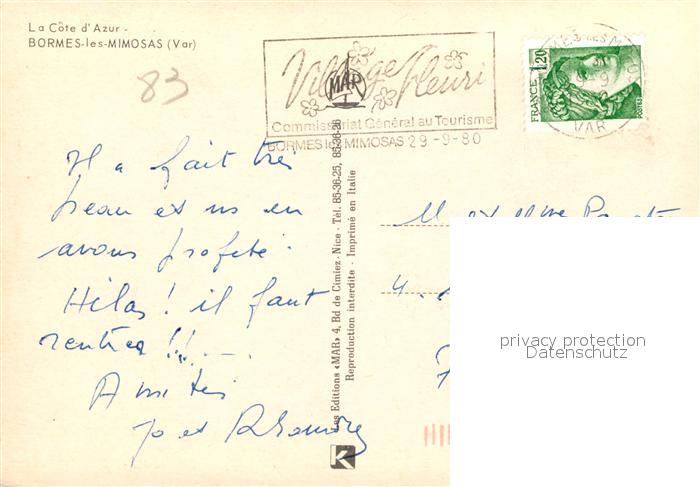 La Côte d'Azur -
BORMES-les-MIMOSAS (Var)
83
Village Fleuri
MAR
Commissariat Général au Tourisme
BORMES les MIMOSAS 29-9-80
FRANCE 1,20
POSTES
VAR
Il a fait très
beau et ns en
avons profité.
Hélas! il faut
rentrer!!...
Amitiés
Jo et
Les Editions «MAR» 4, Bd de Cimiez - Nice - Tél. 85-36-25, 85-36-26
Reproduction interdite - Imprimé en Italie
K
M et Mme
4.
privacy protection
Datenschutz